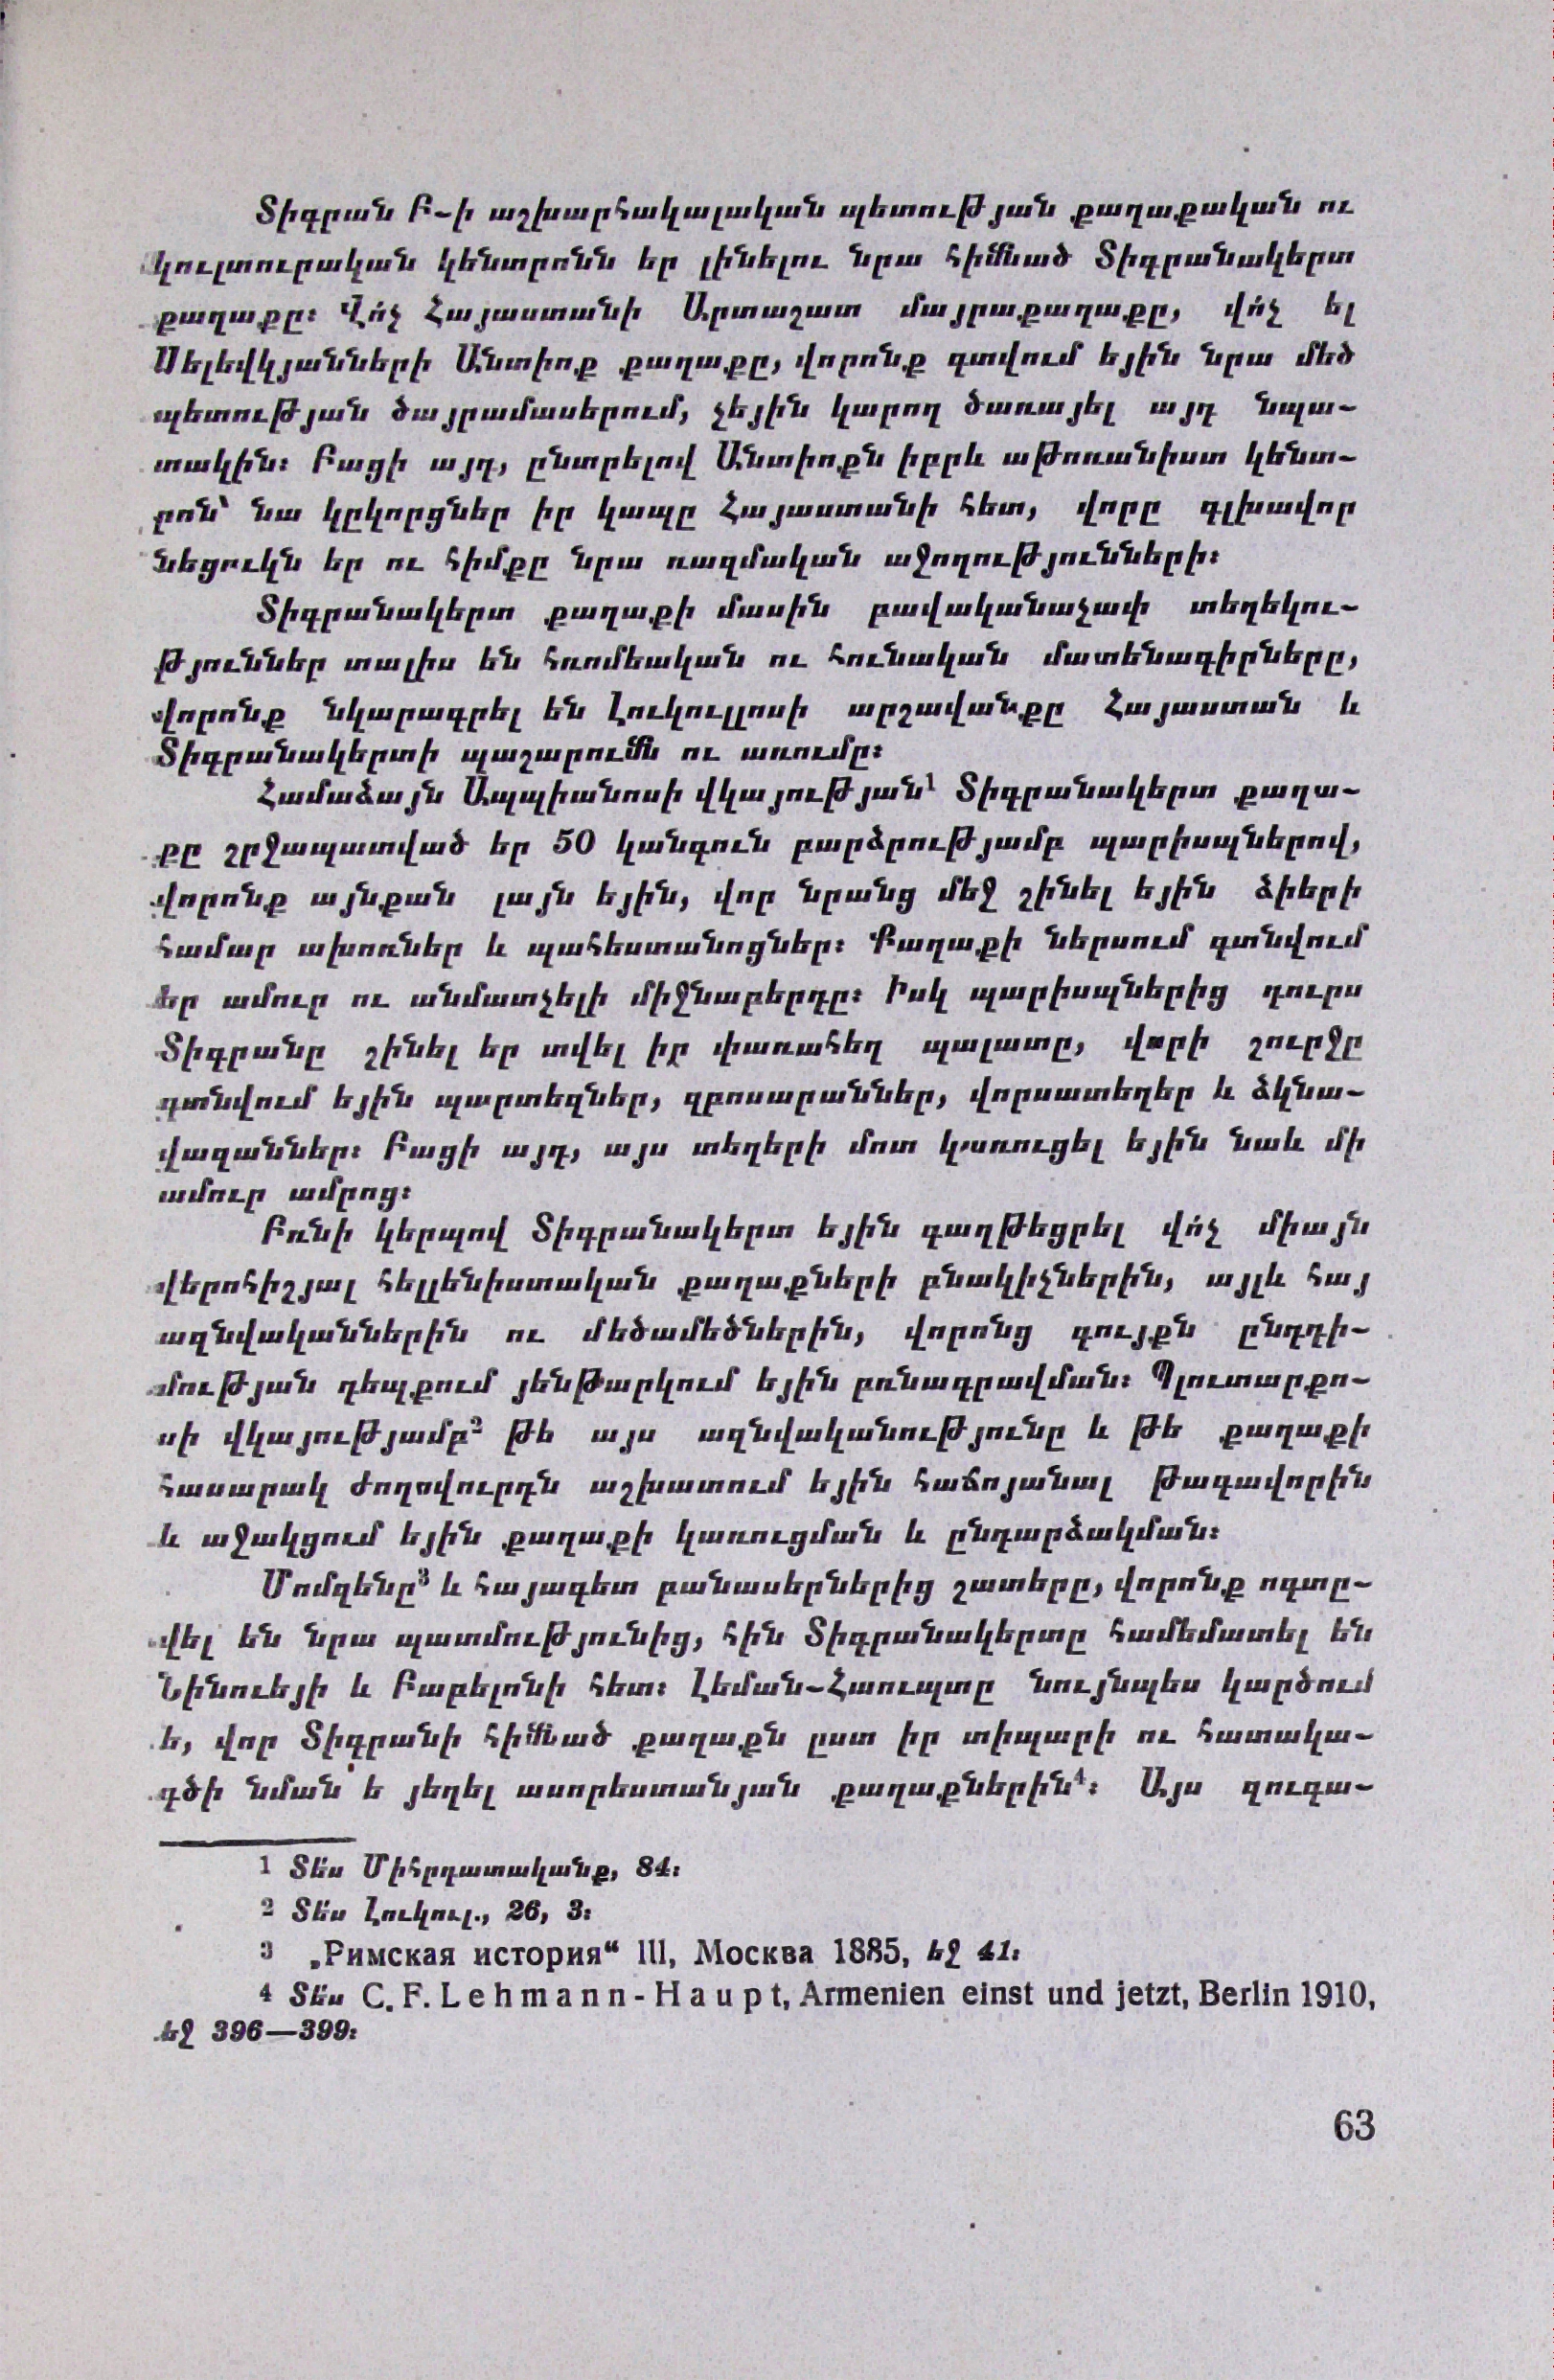 Տիգրան Բ-ի աշխարհակալական պետության քաղաքական ու
կուլտուրական կենտրոնն եր լինելու նրա հիմնած Տիգրանակերտ
քաղաքը։ Վո՛չ Հայաստանի Արտաշատ մայրաքաղաքը, վո՛չ ել
Սելեվկյանների Անտիոք քաղաքը, վորոնք գտվում եյին նրա մեծ
պետության ծայրամասերում, չեյին կարող ծառայել այդ նպա-
տակին։ Բացի այդ, ընտրելով Անտիոքն իբրև աթոռանիստ կենտ-
րոն՝ նա կըկորցներ իր կապը Հայաստանի հետ, վորը գլխավոր
նեցուկն եր ու հիմքը նրա ռազմական աջողությունների։
Տիգրանակերտ քաղաքի մասին բավականաչափ տեղեկու-
թյուններ տալիս են հռոմեական ու հունական մատենագիրները,
վորոնք նկարագրել են Լուկուլլոսի արշավանքը Հայաստան և
Տիգրանակերտի պաշարումն ու առումը։
Համաձայն Ապպիանոսի վկայության¹ Տիգրանակերտ քաղա-
քը շրջապատված եր 50 կանգուն բարձրությամբ պարիսպներով,
վորոնք այնքան լայն եյին, վոր նրանց մեջ շինել եյին ձիերի
համար ախոռներ և պահեստանոցներ։ Քաղաքի ներսում գտնվում
եր ամուր ու անմատչելի միջնաբերդը։ Իսկ պարիսպներից դուրս
Տիգրանը շինել եր տվել իր փառահեղ պալատը, վորի շուրջը
գտնվում եյին պարտեզներ, զբոսարաններ, վորսատեղեր և ձկնա-
վազաններ։ Բացի այդ, այս տեղերի մոտ կառուցել եյին նաև մի
ամուր ամրոց։
Բռնի կերպով Տիգրանակերտ եյին գաղթեցրել վո՛չ միայն
վերոհիշյալ հելլենիստական քաղաքների բնակիչներին, այլև հայ
ազնվականներին ու մեծամեծներին, վորոնց գույքն ընդդի-
մության դեպքում յենթարկում եյին բռնագրավման։ Պլուտարքո-
սի վկայությամբ² թե այս ազնվականությունը և թե քաղաքի
հասարակ ժողովուրդն աշխատում եյին հաճոյանալ թագավորին
և աջակցում եյին քաղաքի կառուցման և ընդարձակման։
Մոմզենը³ և հայագետ բանասերներից շատերը, վորոնք ոգտը-
վել են նրա պատմությունից, հին Տիգրանակերտը համեմատել են
Նինուեյի և Բաբելոնի հետ։ Լեման-Հաուպտը նույնպես կարծում
ե, վոր Տիգրանի հիմնած քաղաքն ըստ իր տիպարի ու հատակա-
գծի նման ե յեղել ասորեստանյան քաղաքներին⁴։ Այս զուգա-
1 Տե՛ս Միհրդատականք, 84։
2 Տե՛ս Լուկուլ., 26, 3։
3 „Римская история“ III, Москва 1885, եջ 41։
4 Տե՛ս C. F. Lehmann-Haupt, Armenien einst und jetzt, Berlin 1910,
եջ 396—399։
63